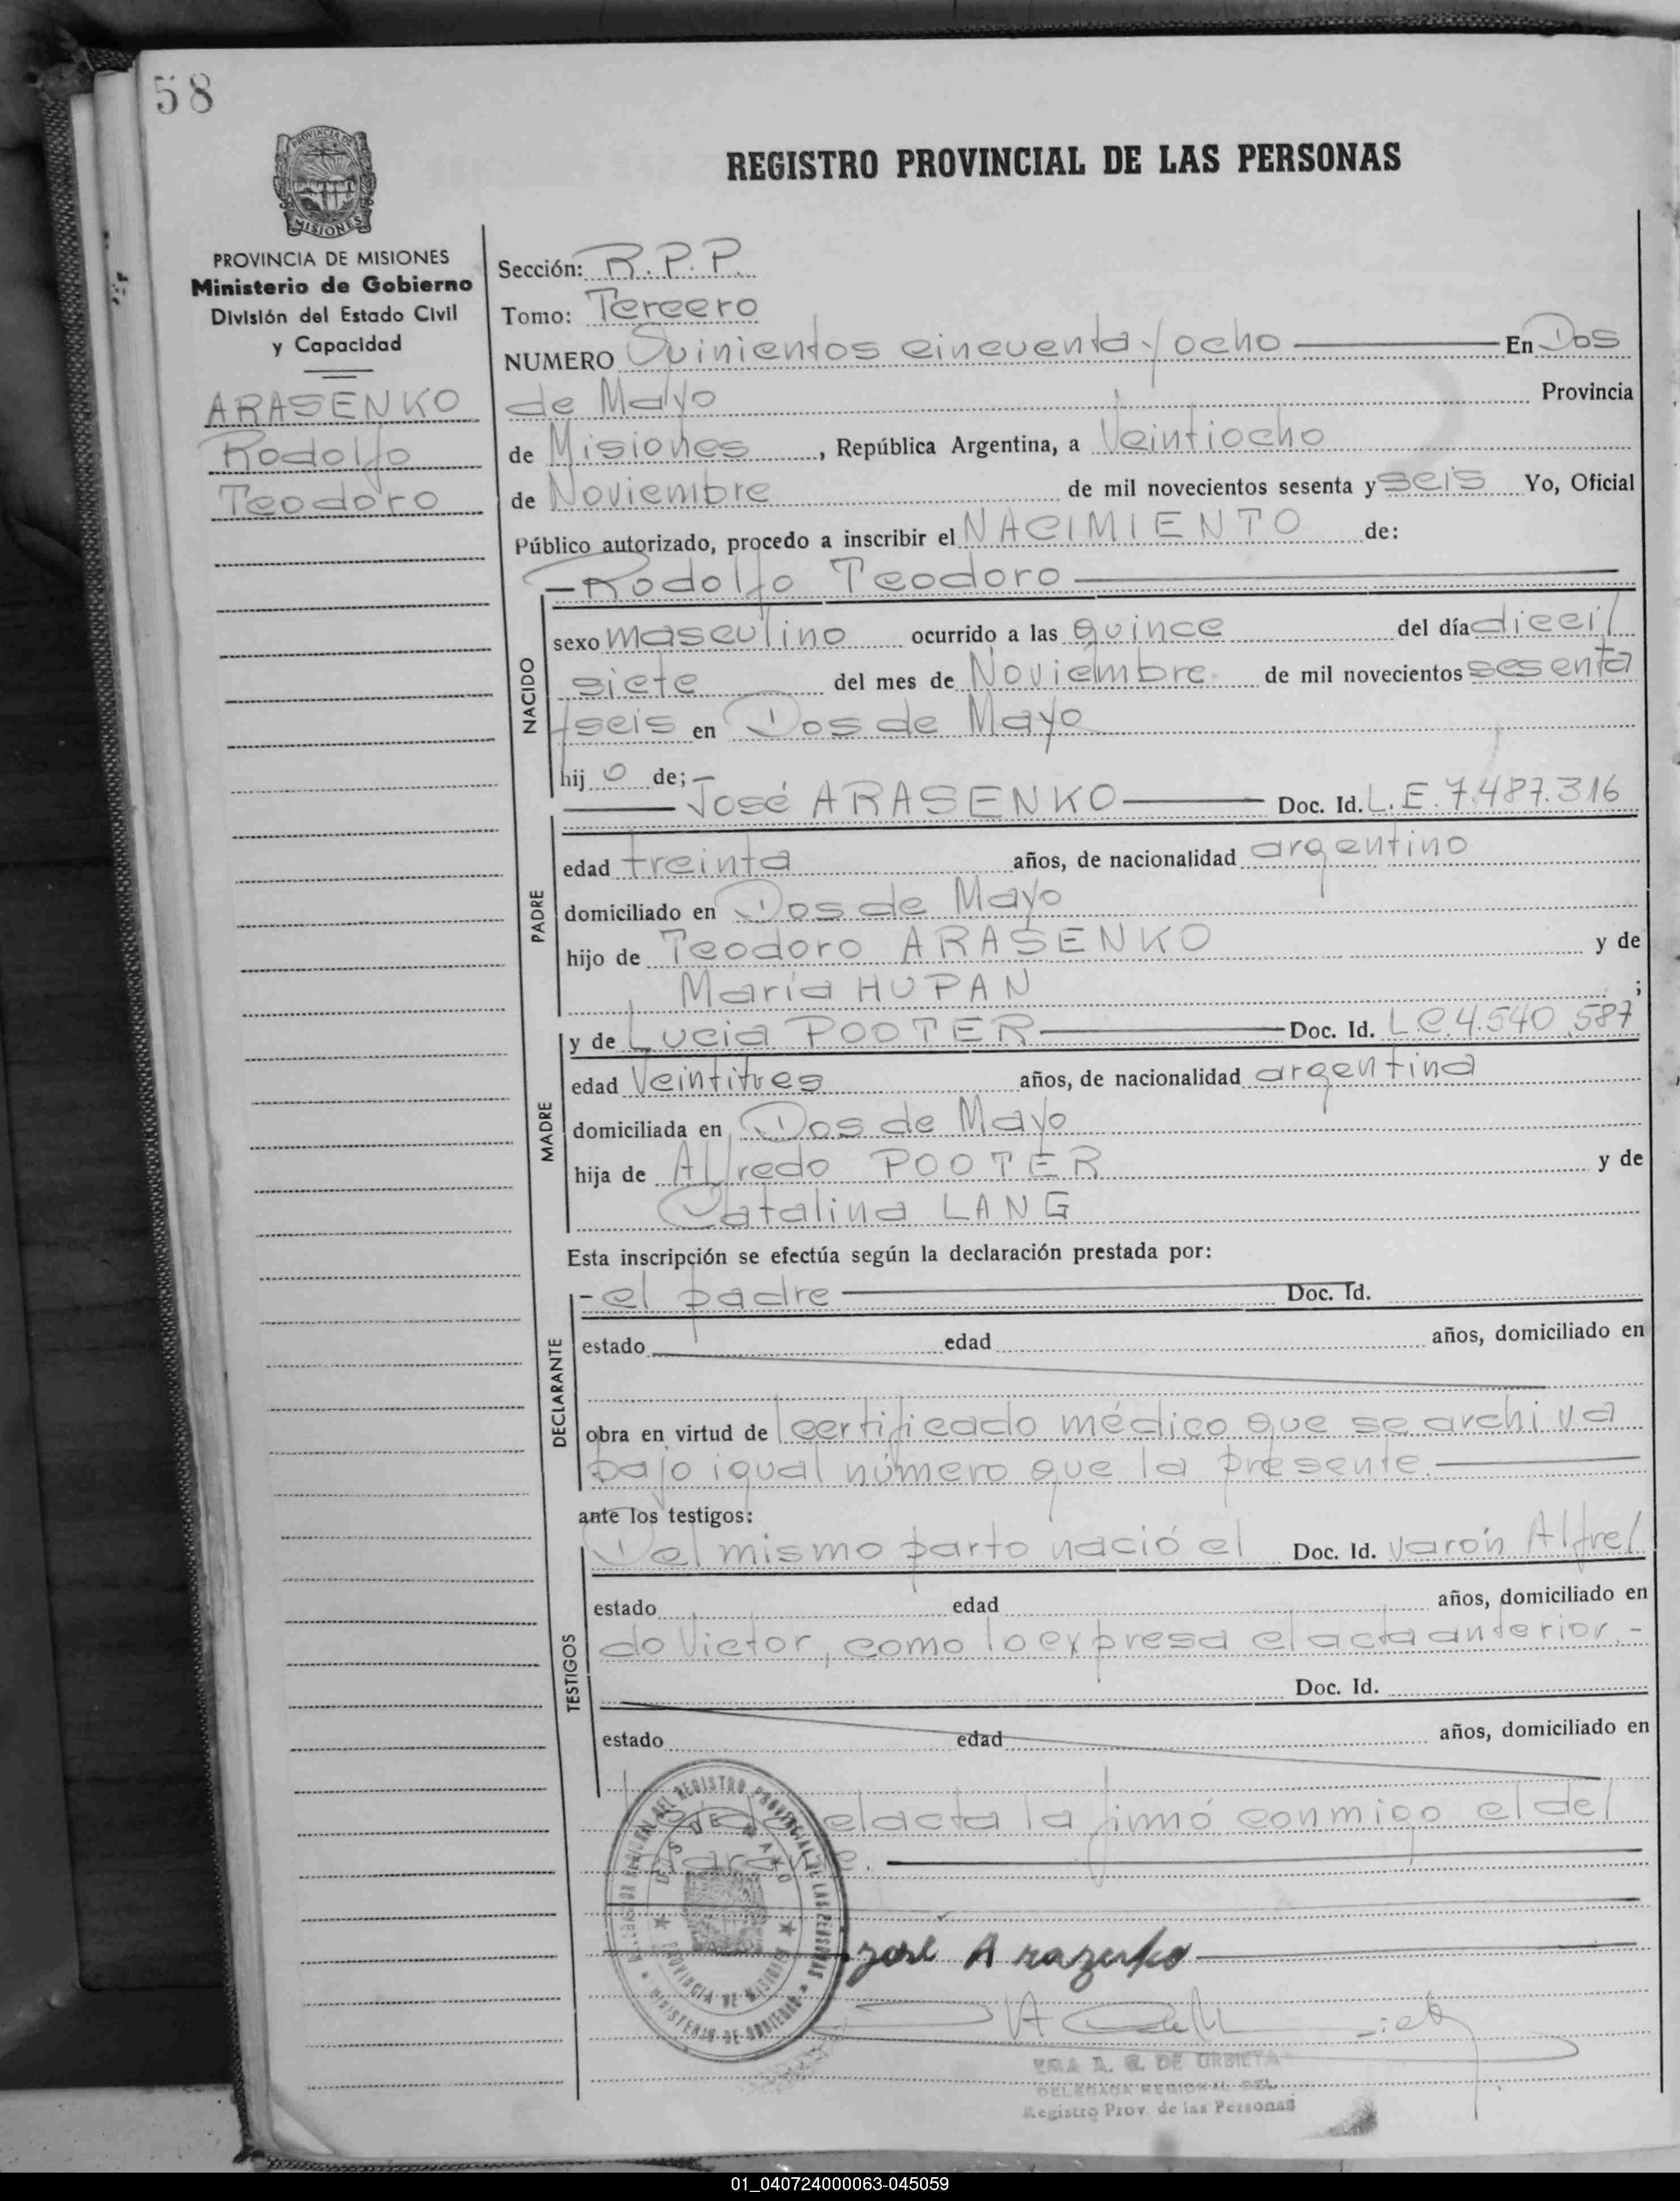 58
PROVINCIA DE
MISIONES
REGISTRO PROVINCIAL DE LAS PERSONAS
PROVINCIA DE MISIONES
Ministerio de Gobierno
División del Estado Civil
y Capacidad
ARASENKO
Rodolfo
Teodoro
Sección: R.P.P.
Tomo: Tercero
NUMERO Quinientos cincuenta y ocho En Dos
de Mayo Provincia
de Misiones, República Argentina, a Veintiocho
de Noviembre de mil novecientos sesenta y seis Yo, Oficial
Público autorizado, procedo a inscribir el NACIMIENTO de:
- Rodolfo Teodoro
NACIDO
sexo masculino ocurrido a las quince del día dieci/
siete del mes de Noviembre de mil novecientos sesenta
y seis en Dos de Mayo
hijo de; -
José ARASENKO Doc. Id. L.E. 7.487.316
PADRE
edad treinta años, de nacionalidad argentino
domiciliado en Dos de Mayo
hijo de Teodoro ARASENKO y de
María HUPAN ;
y de Lucia POOTER Doc. Id. L.C. 4.540.587
MADRE
edad Veintitres años, de nacionalidad argentina
domiciliada en Dos de Mayo
hija de Alfredo POOTER y de
Catalina LANG
Esta inscripción se efectúa según la declaración prestada por:
DECLARANTE
- el padre Doc. Id.
estado edad años, domiciliado en
obra en virtud de certificado médico que se archiva
bajo igual número que la presente.
ante los testigos:
TESTIGOS
Del mismo parto nació el Doc. Id. varón Alfre/
estado edad años, domiciliado en
do Victor, como lo expresa el acta anterior.-
Doc. Id.
estado edad años, domiciliado en
el acta la firmó conmigo el de/
DEL REGISTRO PROVINCIAL DE LAS PERSONAS
MINISTERIO DE GOBIERNO
DOS DE MAYO
PROVINCIA DE MISIONES
José Arazenko
DE URBIETA
DELEGADA REGIONAL DEL
Registro Prov. de las Personas
01_040724000063-045059